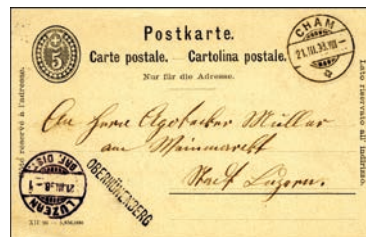 Postkarte.
Carte postale. — Cartolina postale.
Nur für die Adresse.
5
CHAM
21.III.93.VIII
Côté réservé à l'adresse.
Lato riservato all' indirizzo.
An Herrn Apotheker Müller
am Weinmarkt
Stadt Luzern.
OBERMÜHLEBERG
LUZERN
BRF. DIS